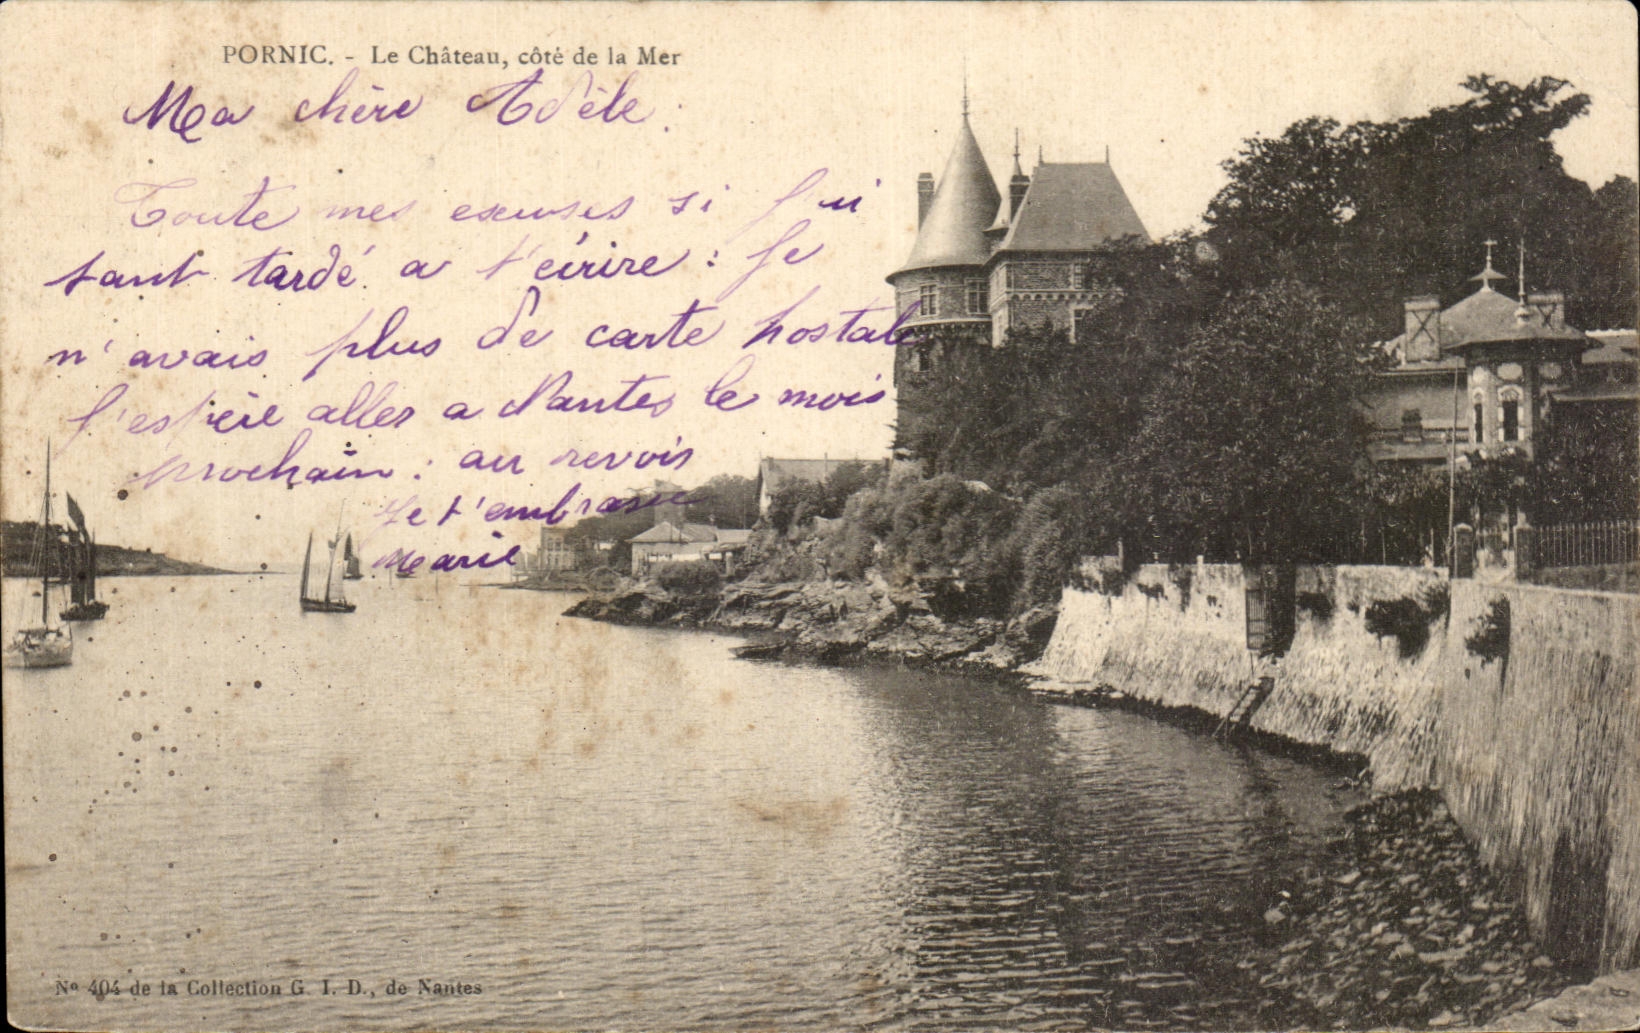 PORNIC. - Le Château, côté de la Mer
Ma chère Adèle.
Toute mes excuses si j'ai
tant tardé a t'écrire : Je
n'avais plus de carte postale
j'espère aller a Nantes le mois
prochain : au revois
Je t'embrasse
Marie
No 404 de la Collection G. I. D., de Nantes